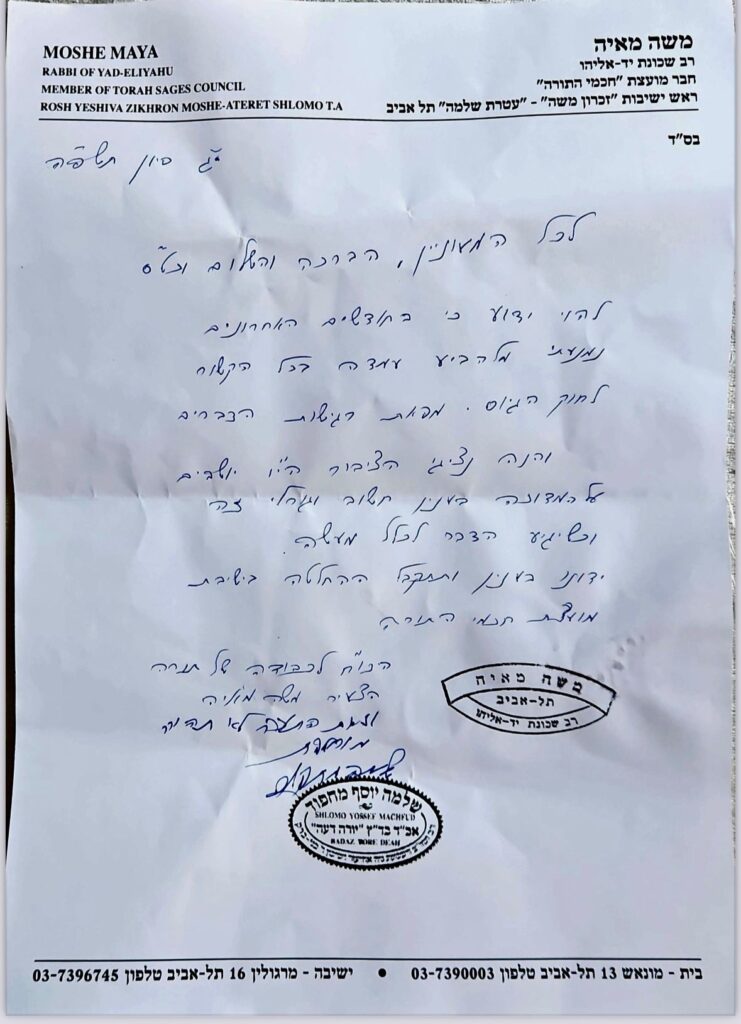 משה מאיה
רב שכונת יד-אליהו
חבר מועצת "חכמי התורה"
ראש ישיבות "זכרון משה" - "עטרת שלמה" תל אביב
MOSHE MAYA
RABBI OF YAD-ELIYAHU
MEMBER OF TORAH SAGES COUNCIL
ROSH YESHIVA ZIKHRON MOSHE-ATERET SHLOMO T.A
בס"ד
י"ג סיון תשפ"ה
לכל המעוניין, הברכה והשלום וכט"ס
להוי ידוע כי בחודשים האחרונים
נמנעתי מלהביע עמדה בכל הקשור
לחוק הגיוס. מפאת רגישות הדברים
והנה נציגי הציבור הי"ו יושבים
על המדוכה בענין חשוב וגורלי זה
וכשיגיע הדבר לכלל מעשה
ידונו בענין ותתקבל ההחלטה בישיבת
מועצת חכמי התורה
הכו"ח לכבודה של תורה
הצעיר משה מאיה
לא תהיה
משה מאיה
תל-אביב
רב שכונת יד-אליהו
שלמה יוסף מחפוד
SHLOMO YOSSEF MACHFUD
אב"ד בד"ץ "יורה דעה"
BADAZ YORE DEAH
בית - מונאש 13 תל-אביב טלפון 03-7390003 • ישיבה - מרגולין 16 תל-אביב טלפון 03-7396745